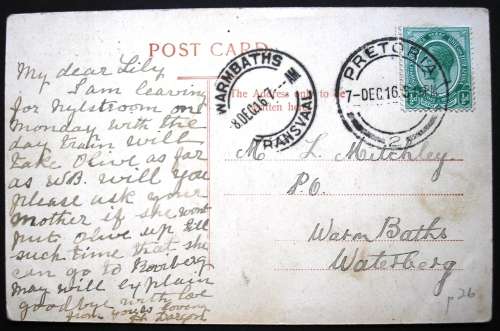 POST CARD
The Address only to be
written here
WARMBATHS
8 DEC 16
TRANSVAAL
PRETORIA
7-DEC.16
2
My dear Lily
I am leaving
for Nylstroom on
Monday with the
day train will
take Olive as far
as WB. will you
please ask your
mother if she wont
put Olive up till
such time that she
can go to Rooiberg
may will explain
goodbye with love
from yours loving
M L. Mitchley.
P.O.
Warm Baths
Watersberg
p26